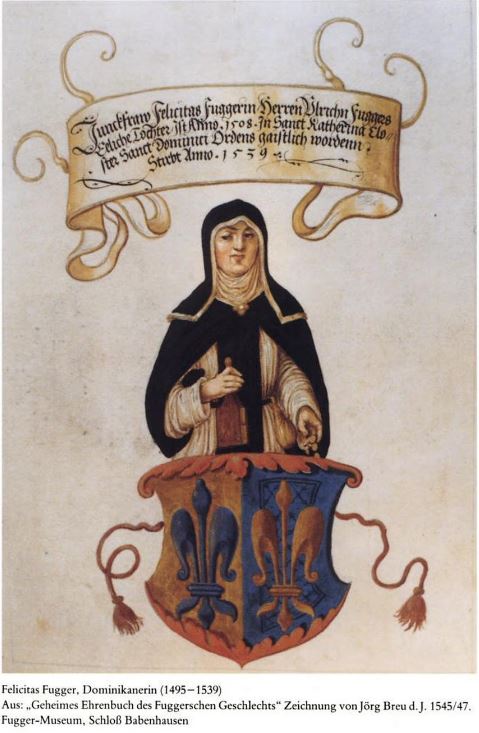 Junckfraw Felicitas Fuggerin Herren Vlrichn Fuggers
Eeliche Tochter Ist Anno. 1508. In Sanct Katherina Clo-
ster Sanct Dominici Ordens gaistlich wordenn.
Stirbt Anno. 1539
Felicitas Fugger, Dominikanerin (1495–1539)
Aus: „Geheimes Ehrenbuch des Fuggerschen Geschlechts“ Zeichnung von Jörg Breu d. J. 1545/47.
Fugger-Museum, Schloß Babenhausen